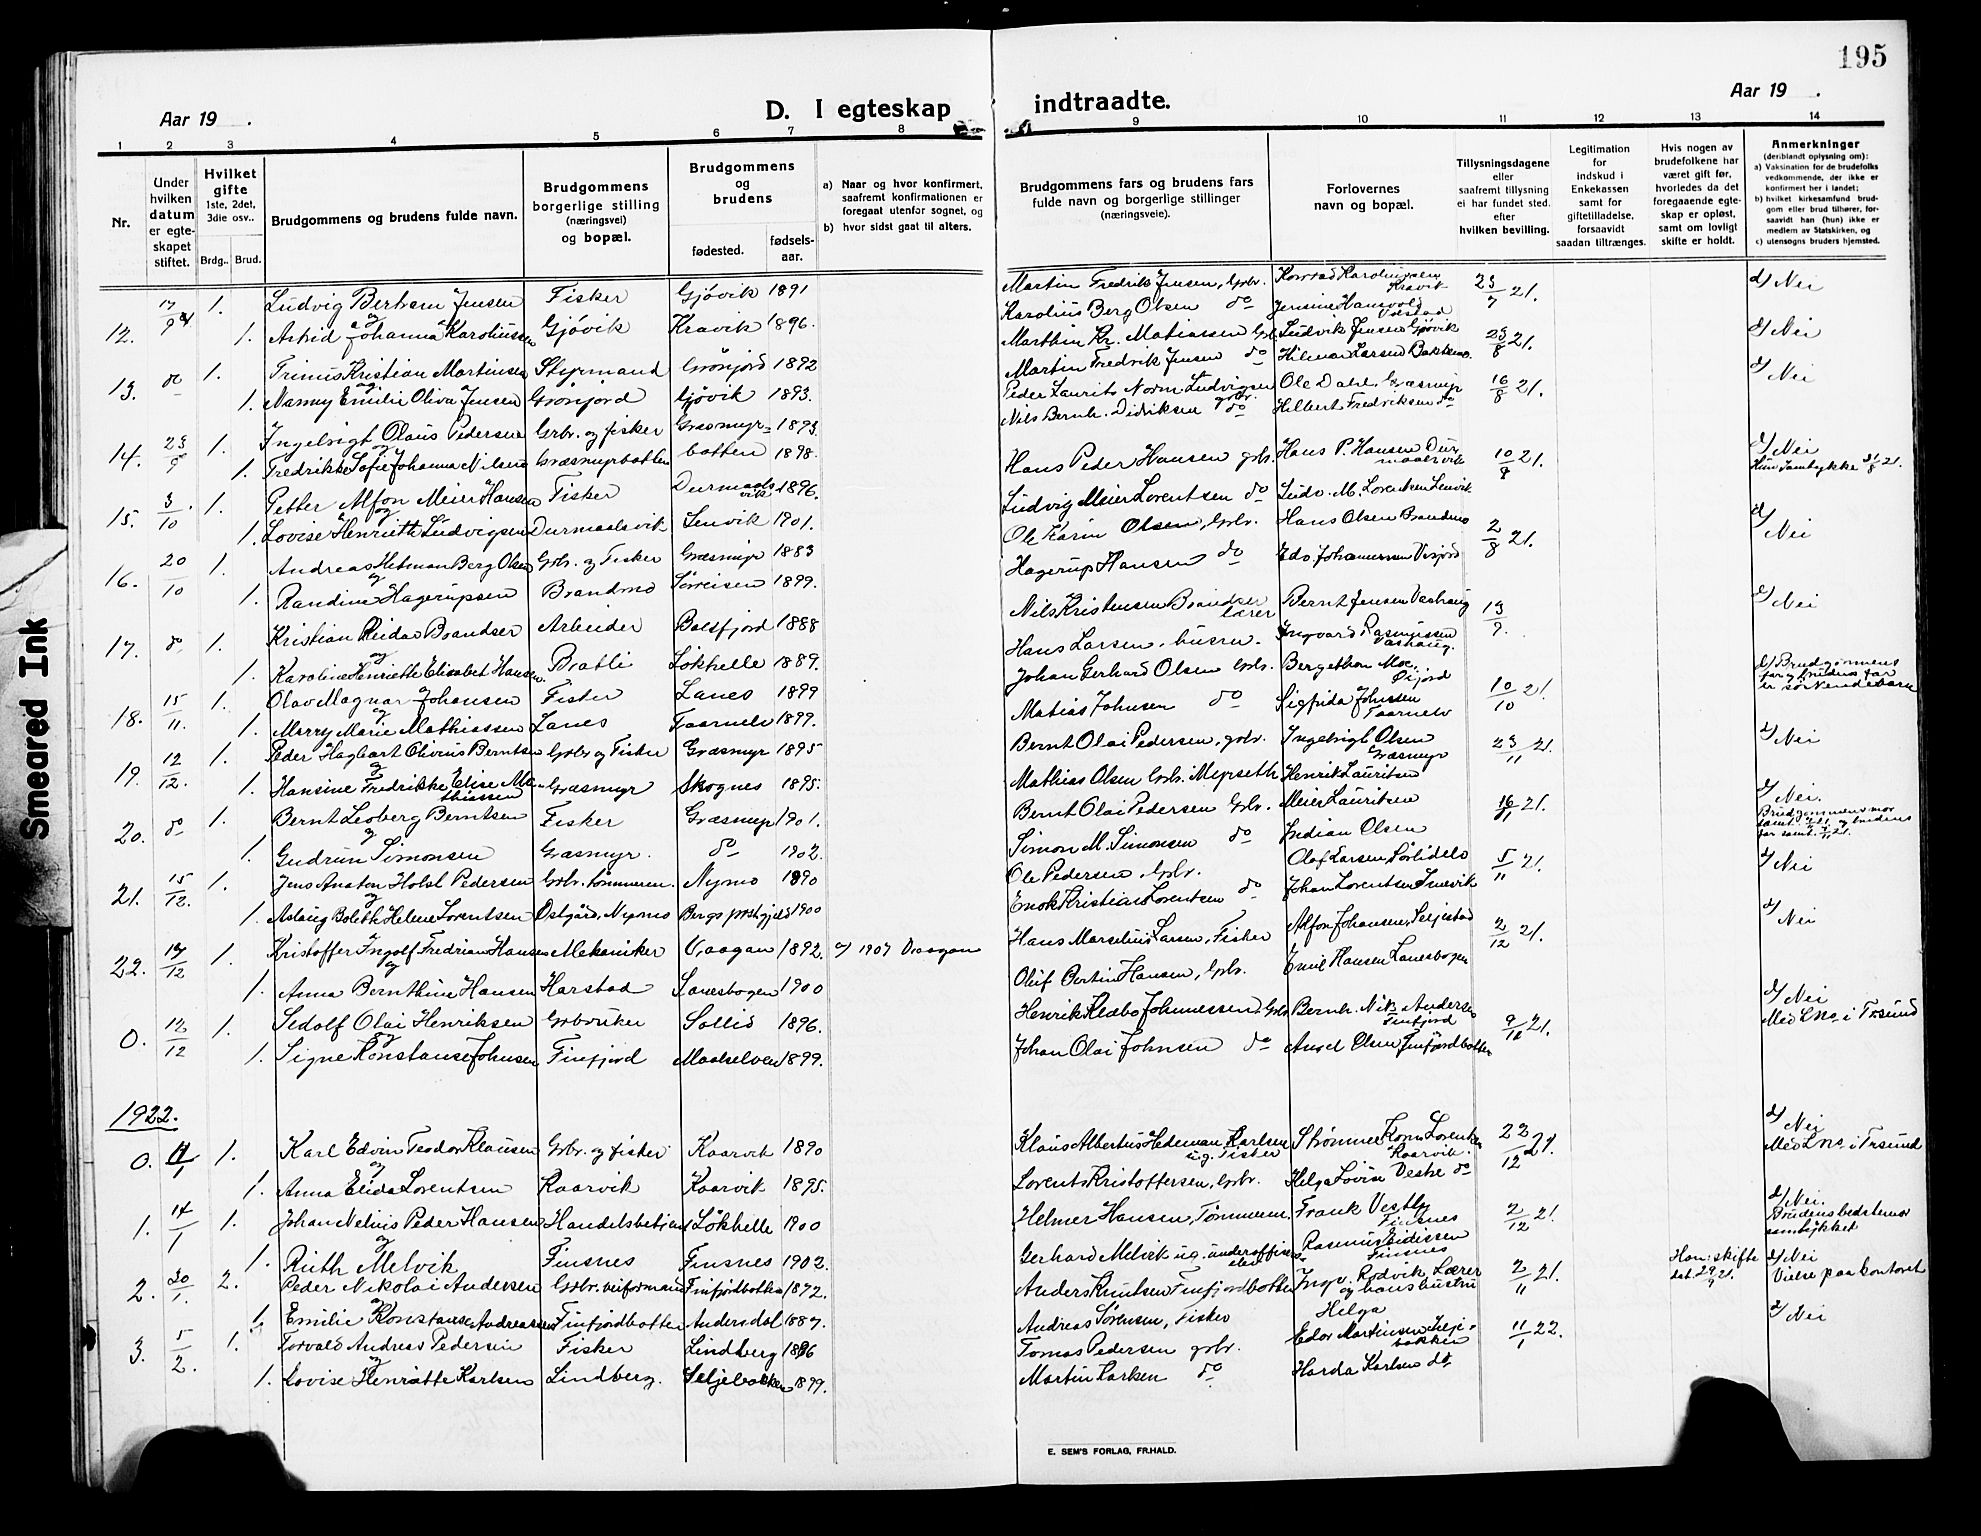 195
Aar 19 .
D. I egteskap indtraadte.
Aar 19 .
1 2 3 4 5 6 7 8 9 10 11 12 13 14
Nr.
Under hvilken datum er egteskapet stiftet.
Hvilket gifte 1ste, 2det, 3die osv..
Brdg.. Brud.
Brudgommens og brudens fulde navn.
Brudgommens borgerlige stilling (næringsvei) og bopæl.
Brudgommens og brudens
fødested.
fødselsaar.
a) Naar og hvor konfirmert, saafremt konfirmationen er foregaat utenfor sognet, og
b) hvor sidst gaat til alters.
Brudgommens fars og brudens fars fulde navn og borgerlige stillinger (næringsveie).
Forlovernes navn og bopæl.
Tillysningsdagene eller saafremt tillysning ei har fundet sted. efter hvilken bevilling.
Legitimation for indskud i Enkekassen samt for giftetilladelse, forsaavidt saadan tiltrænges.
Hvis nogen av brudefolkene har været gift før, hvorledes da det foregaaende egteskap er opløst, samt om lovligt skifte er holdt.
Anmerkninger
(deriblandt oplysning om):
a) Vaksination for de brudefolks vedkommende, der ikke er konfirmert her i landet;
b) hvilket kirkesamfund brudgom eller brud tilhører, forsaavidt han (hun) ikke er medlem av Statskirken, og
c) utensogns bruders hjemsted.
12. 17/9 21 1. Ludvig Bertram Jensen Fisker Gjövik 1891 Martin Fredrik Jensen, Grbr. Konrad Karoliussen Kravik 23/7 21. d/ Nei
og
1. Astrid Johanna Karoliussen Gjövik Kravik 1896. Karolius Berg Olsen do Jensine Hansvold
13. do 1. Primus Kristian Martinsen Styrmand Grönjord 1892 Marthin Kr. Matiassen Grbr. Ludvik Jensen Gjövik 23/8 21. d/ Nei
og
1. Nanny Emilie Oliva Jensen Grönjord Gjövik 1893. Martin Fredrik Jensen do Hilmar Larsen Bakkemo
14. 23/9 1. Ingebrigt Olaus Pedersen Grbr. og fisker Græsmyr= 1893 Peder Laurits Norm. Ludvigsen grbr. Ole Dahl, Græsmyr 16/8 21. d/ Nei
og
1. Fredrikke Sofie Johanna Nilsen Græsmyrbotten botten 1898. Nils Bernh. Didriksen do Hilbert Fredriksen do
15. 3/10 1. Petter Alfon Meier Hansen Fisker Durmaalsvik 1896. Hans Peder Hansen grbr. Hans P. Hansen Durmaalsvik 10/9 21. d/ Nei
og
1. Lovise Henriette Ludvigsen Durmaalsvik Lenvik 1901. Ludvig Meier Lorentsen do Ludv. M. Lorentsen Lenvik Hun Samtykke 31/8 21.
16. 20/10 1. Andreas Hetman Berg Olsen Grbr. og Fisker Græsmyr 1883 Ole Karin Olsen, Grbr. Hans Olsen Brandmo 2/8 21. d/ Nei
og
1. Randine Hagerupsen Brandmo Sörreisen 1899. Hagerup Hansen do Edv. Johannessen Vesjord
17. do 1. Kristian Reidar Brandser Arbeider Balsfjord 1888 Nils Kristensen Brandser lærer Bernt Jensen Vashaug 13/9. d/ Nei
og
1. Karoline Henriette Elisabet Hansen Bratli Lökhelle 1889. Hans Larsen, husm. Ingvard Rasmussen Vashaug.
18. 15/11. 1. Olav Magnar Johansen Fisker Lanes 1899 Johan Gerhard Olsen Grbr. Bergethon Moe, Öijord 10/10 21. d/ Brudgommens far og brudens far er sörskendebarn
og
1. Marry Marie Mathiassen Lanes Taarnelv 1899. Matias Johnsen do Sigfrida Johnsen Taarnelv
19. 12/12. 1. Peder Hagbart Olivius Berntsen Grbr og Fisker Græsmyr 1895 Bernt Olai Pedersen, grbr. Ingebrigt Olsen Græsmyr 23/11 21. d/ Nei
og
1. Hansine Fredrikke Elise Mathiassen Græsmyr Skognes 1895. Mathias Olsen Grbr. Myrseth Henrik Lauritsen
20. do 1. Bernt Leoberg Berntsen Fisker Græsmyr 1901. Bernt Olai Pedersen Grbr. Meier Lauritsen 16/11 21. d/ Nei. Brudgommens mor samt. og brudens far samt.
og
1. Gudrun Simonsen Græsmyr. do 1902. Simon M. Simonsen do Indian Olsen
21. 15/12. 1. Jens Anston Holst Pedersen Grbr. tömmerm. Nymo 1890 Ole Pedersen Grbr. Olaf Larsen, Sörlidelv 5/11 21. d/ Nei
og
1. Aslaug Boleth Helene Lorentsen Östgård, Nymo Bergs prestgjeld 1900 Enok Kristian Lorentsen do Johan Lorentsen Smevik
22. 17/12 1. Kristoffer Ingolf Fredrian Hansen Mekaniker Vaagan 1892. a/ 1907 Vaagan Hans Marselius Larsen, Fisker Alfon Johansen, Seljestad 2/12 21. d/ Nei
og
1. Anna Bernthine Hansen Harstad Lanesbogen 1900 Oluf Bertin Hansen, Grbr. Emil Hansen Lanesbogen
0. 12/12 1. Sedolf Olai Henriksen Grbruker Sollid 1896. Henrik Klæbo Johannessen Grbr Bernh. Nik. Andersen Finfjord 9/12 21. d/ Nei Med L No i Trsund
og
1. Signe Konstanse Johnsen Finfjord Maalselven 1899. Johan Olai Johnsen do Angel Olsen Finfjordbotten
1922.
0. 4/1 1. Karl Edvin Teodor Klausen Grbr. og fisker Kaarvik 1890 Klaus Albertus Hedeman Karlsen ug. Fisker Strømmer Korn. Lorentsen Kaarvik. 22/12 21. d/ Nei Med L No i Trsund
og
1. Anna Elida Lorentsen Kaarvik Kaarvik 1895. Lorents Kristoffersen, Grbr. Helga Lovise Deske do
1. 14/1 1. Johan Nelius Peder Hansen Handelsbetjent Lökhelle 1900 Helmer Hansen, Tömmerm. Frank Vestby Finsnes 2/12 21. d/ Nei. Brudens bedstemor samtykket
og
1. Ruth Melvik Finsnes Finsnes 1902. Gerhard Melvik ug. underoffisers elev Rasmus Eidissen Finsnes
2. 30/1. 2. Peder Nikolai Andersen Grbr. veiformand Finfjordbotten 1872. Anders Knutsen Finfjordbotten Ingv. Rödvik Lærer og hans hustru 2/11 21. Han: skifte dat. 29/9 21. d/ Nei Vielse paa kontoret
og
1. Emilie Konstanse Andreassen Finfjordbotten Andersdal 1887. Andreas Sörensen, Fisker Helga
3. 5/2. 1. Torvald Andreas Pedersen Fisker Lindberg 1896 Tomas Pedersen grbr. Edor Martinsen Seljebakken 11/1 22. d/ Nei
og
1. Lovise Henriette Karlsen Lindberg. Seljebakken 1899. Martin Karlsen do Harda Karlsen do
E. SEM'S FORLAG, FR.HALD.
Smeared Ink